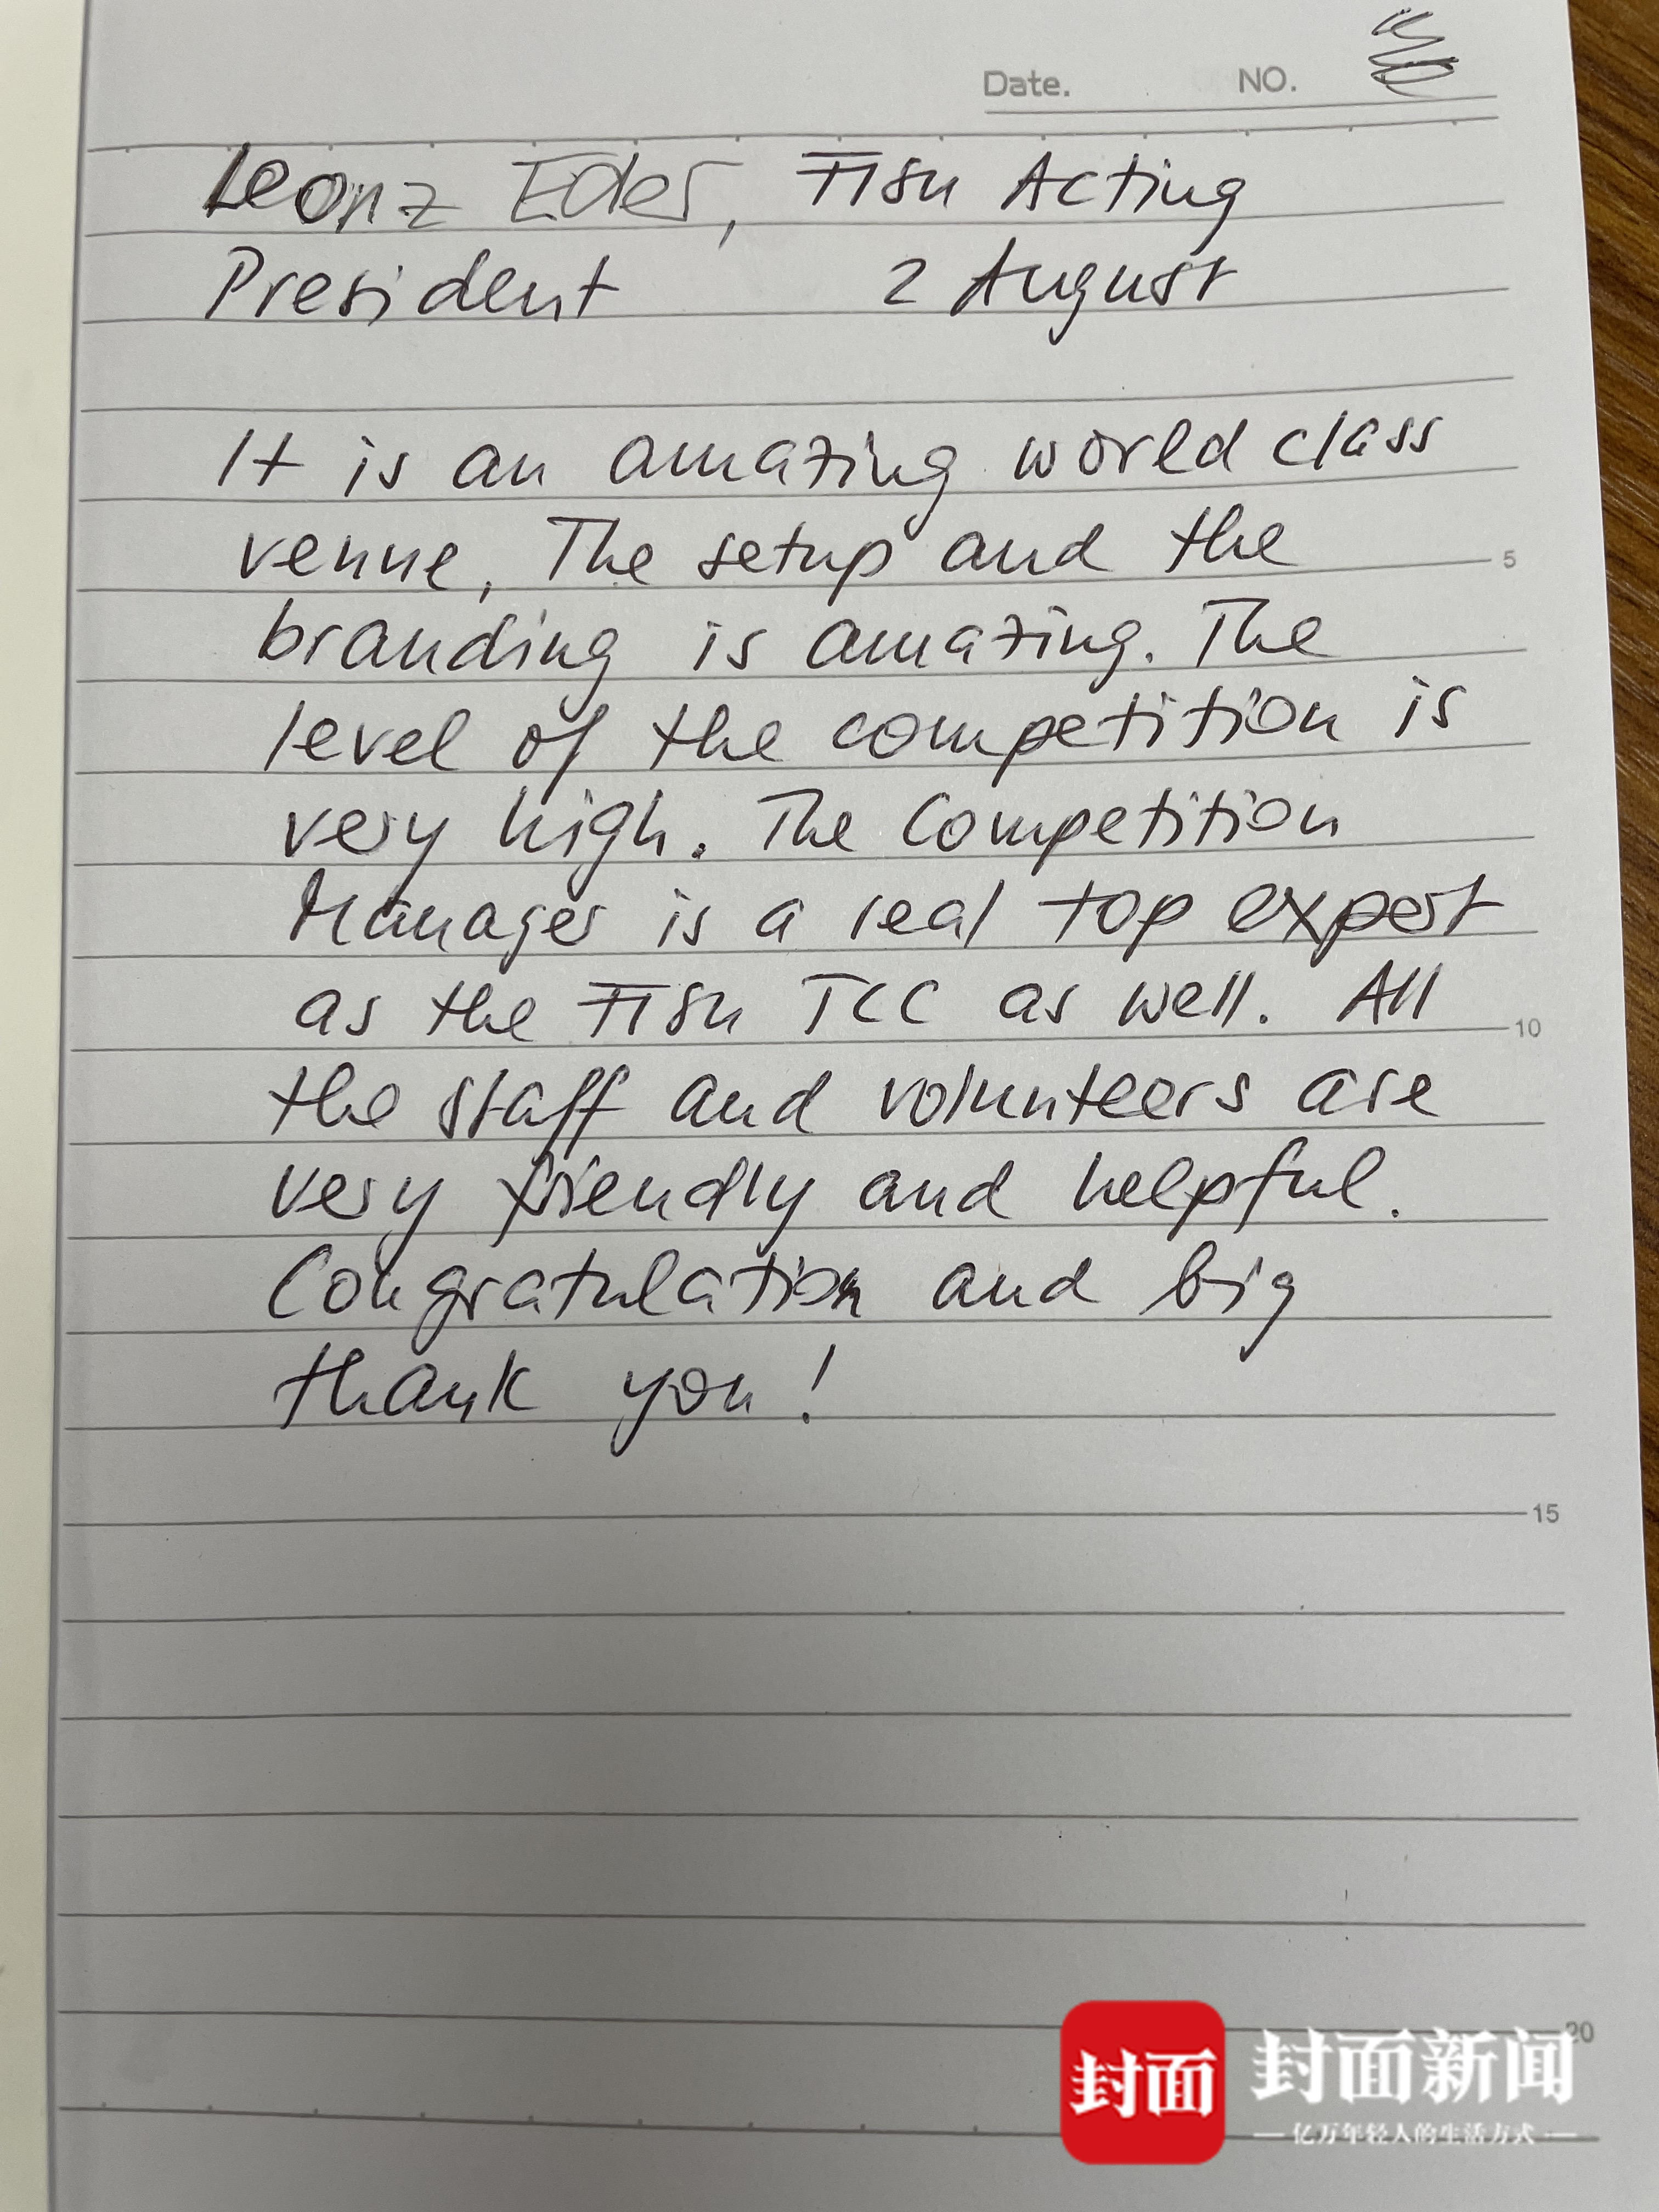 Date. NO.
Leonz Eder, FISU Acting
President 2 August
It is an amazing world class
venue, The setup and the
branding is amazing. The
level of the competition is
very high. The Competition
Manager is a real top expert
as the FISU TCC as well. All
the staff and volunteers are
very friendly and helpful.
Congratulation and big
thank you!
5
10
15
20
封面 封面新闻
亿万年轻人的生活方式